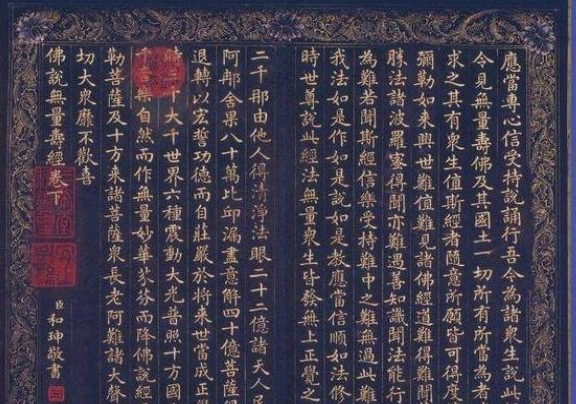 應當專心信受持說誦行吾今為諸眾生說此
今見無量壽佛及其國土一切所有所當為者
求之其有眾生值斯經者隨意所願皆可得度
彌勒如來興世難值難見諸佛經道難得難聞
勝法諸波羅蜜得聞亦難遇善知識聞法能行
為難若聞斯經信樂受持難中之難無過此難
我法如是作如是說如是教應當信順如法修
時世尊說此經法無量眾生皆發無上正覺之
二千那由他人得清淨法眼二十二億諸天人民
阿那舍果八十萬比邱漏盡意解四十億菩薩得
退轉以宏誓功德而自莊嚴於將來世當成正覺
時三千大千世界六種震動大光普照十方國
千音樂自然而作無量妙華芬芬而降佛說經
勒菩薩及十方來諸菩薩眾長老阿難諸大聲
切大眾靡不歡喜
佛說無量壽經卷下
臣和珅敬書